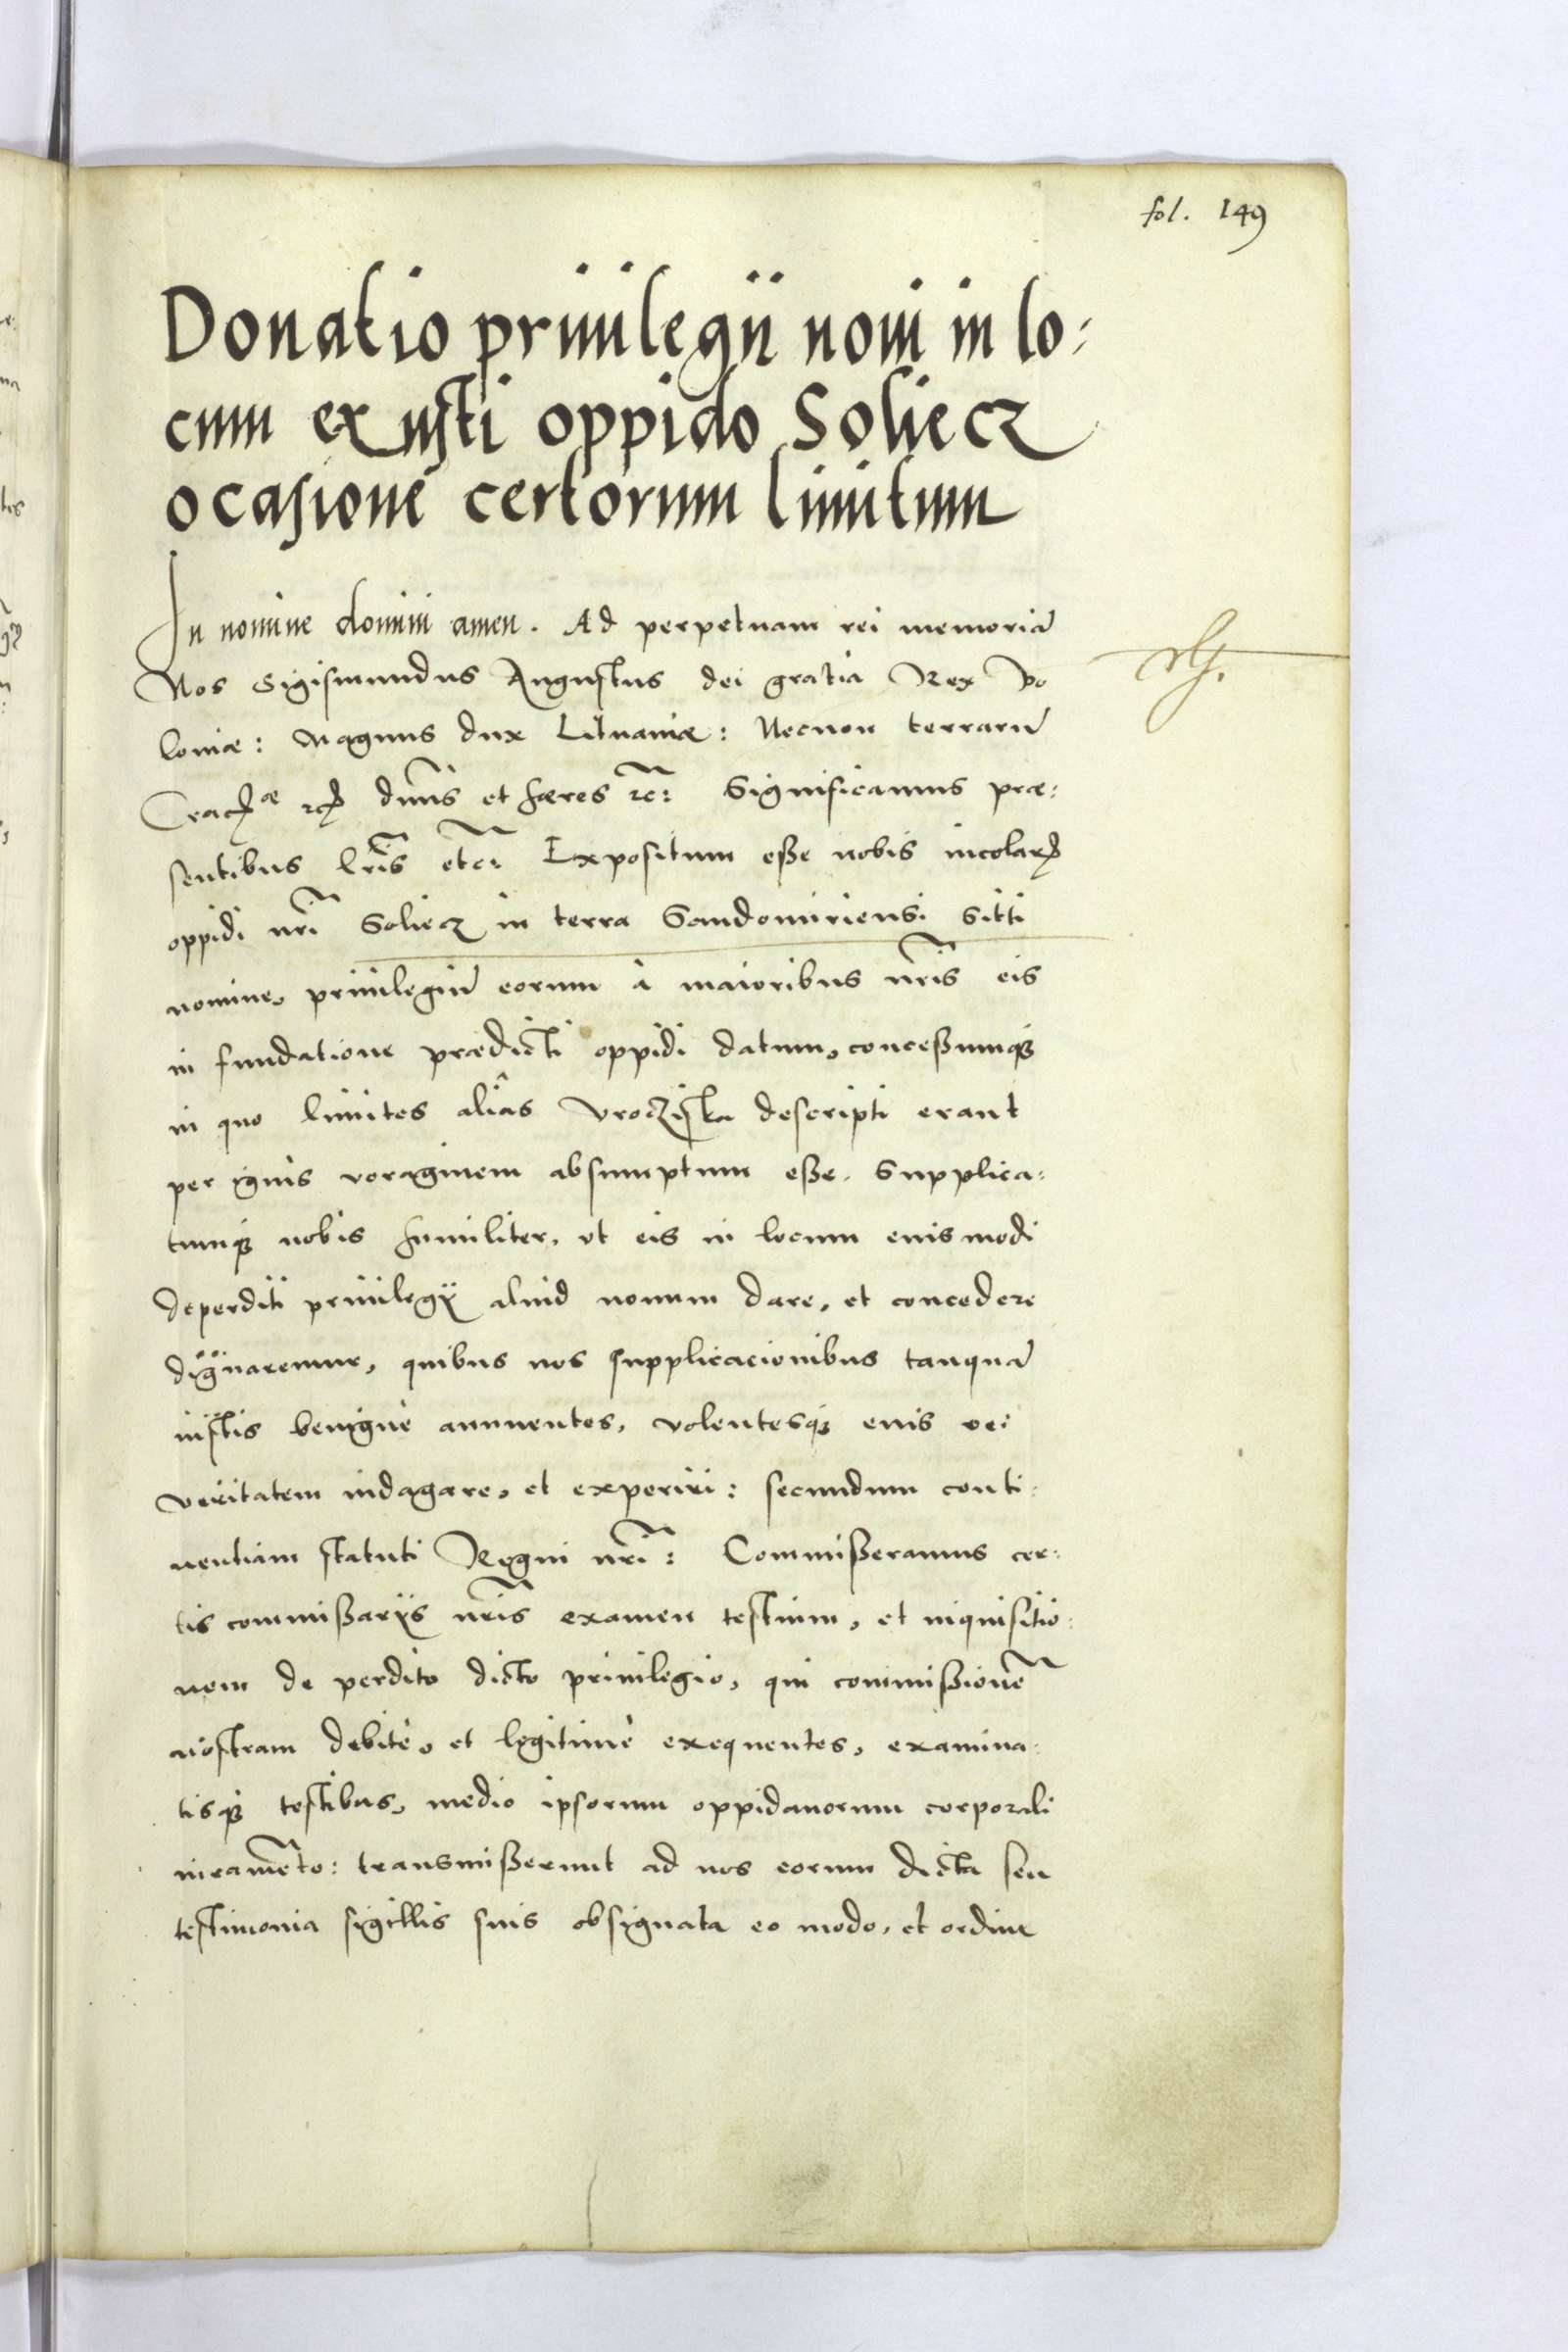 fol. 149
Donatio priuilegii noui in lo:
cum exusti oppido Soliecz
ocasione certorum limitum
In nomine domini amen. Ad perpetuam rei memoriā
Nos Sigismundus Augustus dei gratia Rex Po
loniæ: Magnus dux Lituaniæ: Necnon terrarū
dn̄us et hæres Significamus præ:
sentibus lr̄is etc: Expositum esse nobis incolarꝝ
oppidi nr̄i Soliecz in terra Sandomiriensi sitti
nomine, priuilegiū eorum à maioribus nr̄is eis
in fundatione prædicti oppidi datum, concessumqꝫ
in quo limites aliâs vroczyska descripti erant
per ignis voraginem absumptum esse. Supplica:
tumqꝫ nobis humiliter, vt eis in locum euismodi
deperditi priuilegÿ aliud nouum dare, et concedere
dignaremur, quibus nos supplicacionibus tanquā
iustis benignè annuentes, volentesqꝫ euis rei
veritatem indagare, et experiri: secundum conti:
nentiam statuti Regni nr̄i: Commisseramus cer:
tis commissarÿs nr̄is examen testium, et inquisitio:
nem de perdito dicto priuilegio, qui commissionē
nostram debitè, et legitimè exequentes, examina:
tisqꝫ testibus, medio ipsorum oppidanorum corporali
iuramēto: transmisserunt ad nos eorum dicta seu
testimonia sigillis suis obsignata eo modo, et ordine